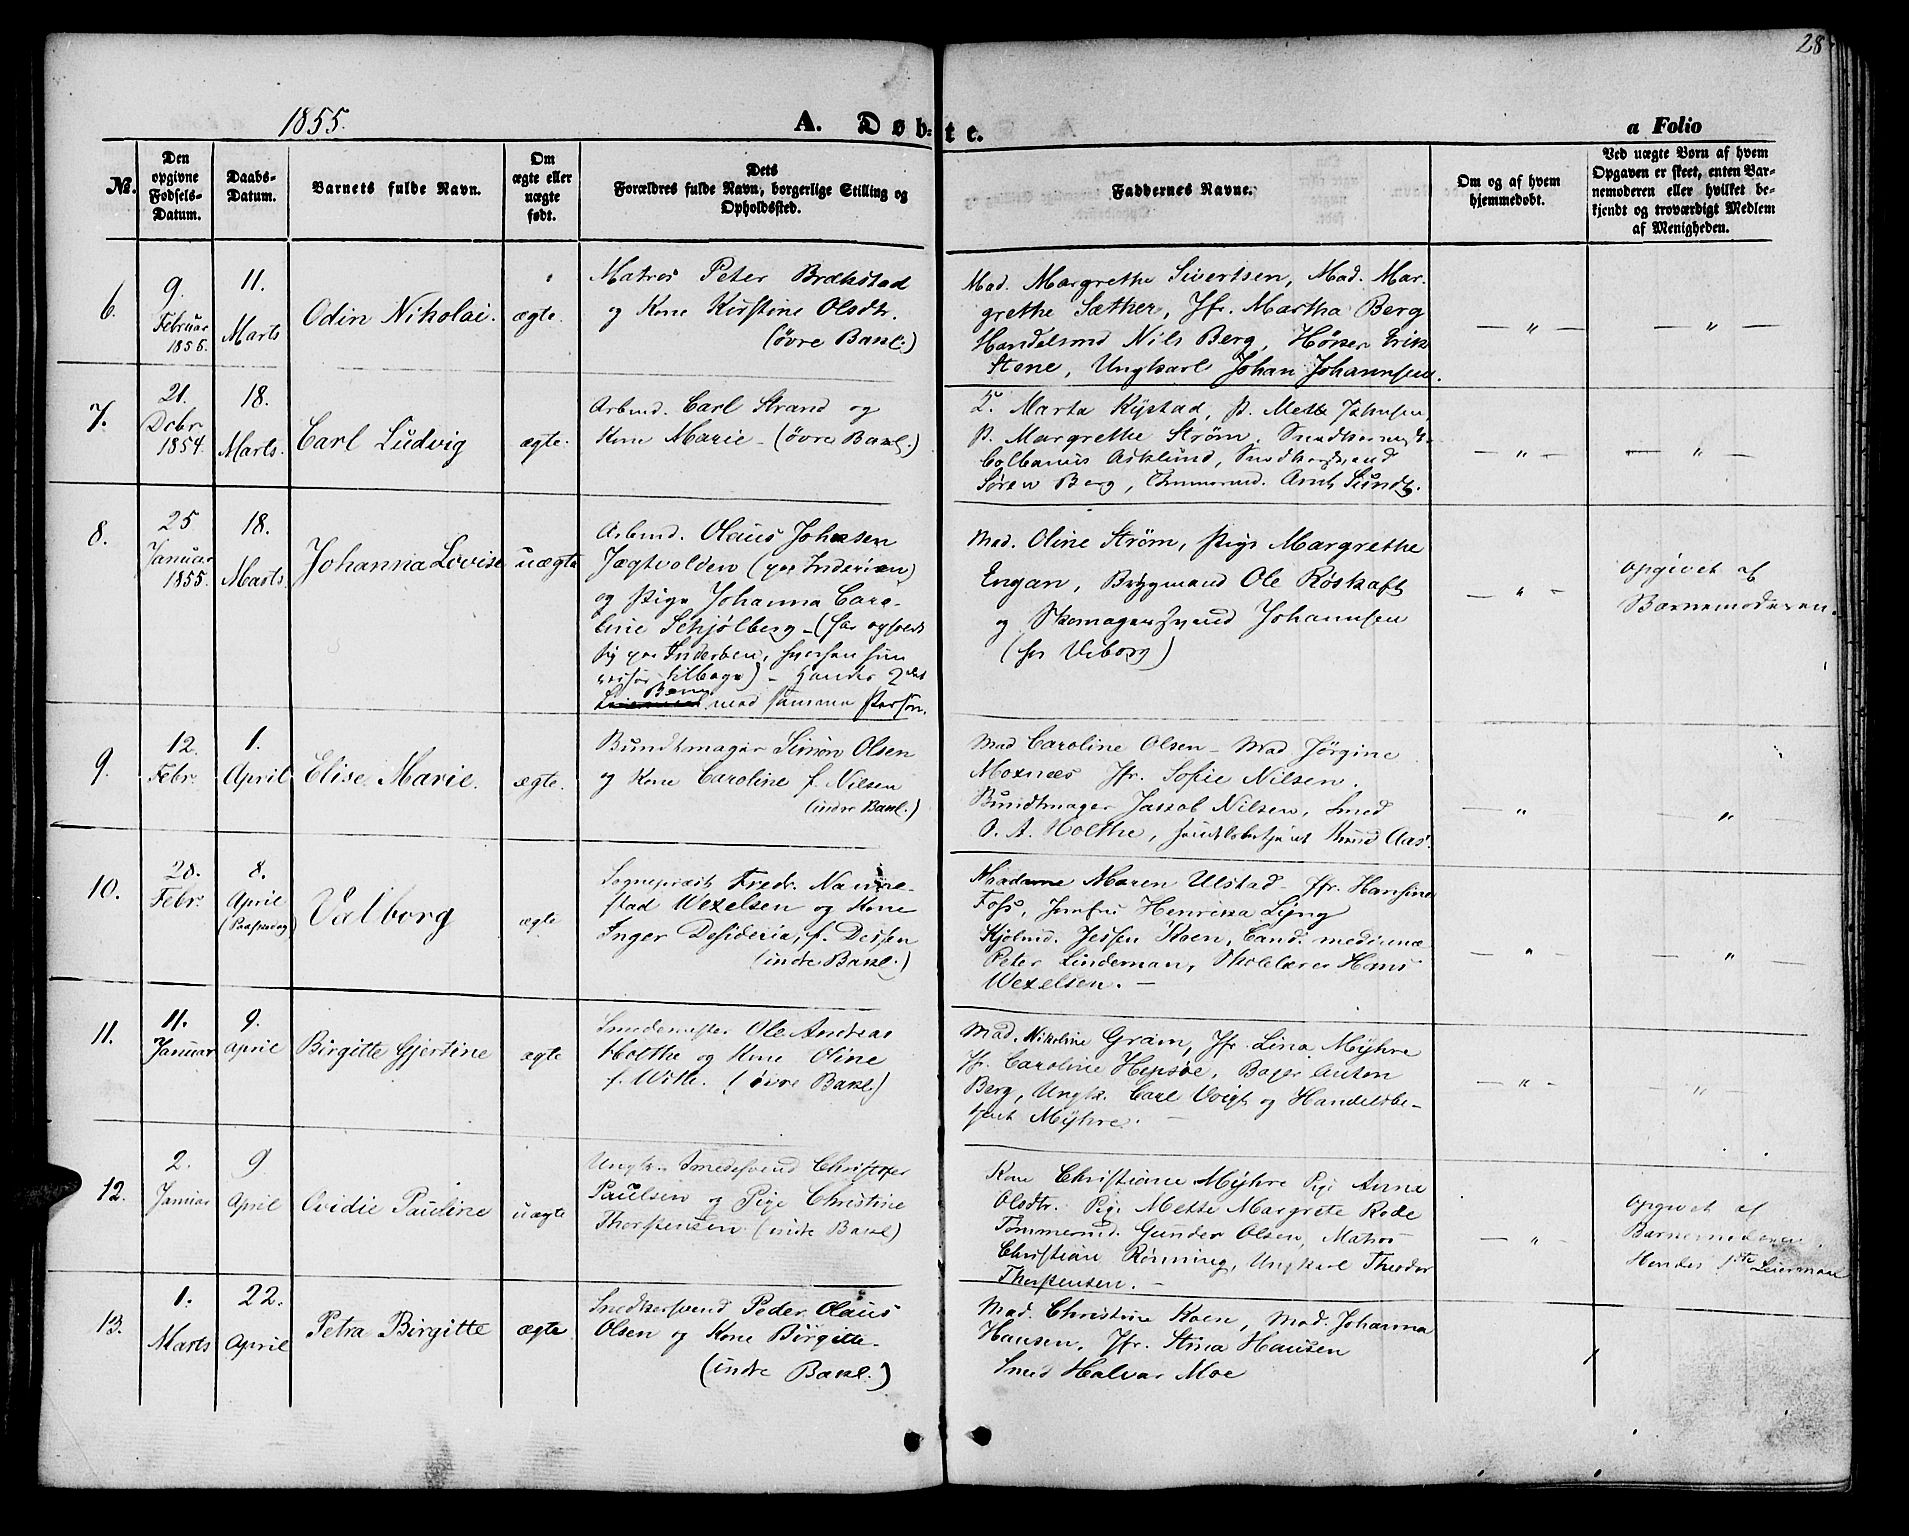 28
1855.
A. Døbte.
a Folio
No.
Den opgivne Fødsels-Datum.
Daabs-Datum.
Barnets fulde Navn.
Om ægte eller uægte født.
Dets Forældres fulde Navn, borgerlige Stilling og Opholdssted.
Faddernes Navne.
Om og af hvem hjemmedøbt.
Ved uægte Børn af hvem Opgaven er skeet, enten Barnemoderen eller hvilket bekjendt og troværdigt Medlem af Menigheden.
6.
9. Februar 1855.
11. Marts
Odin Nikolai.
ægte.
Matros Peter Brækstad
og Kone Kirstine Olsdtr.
(øvre Bakl.)
Mad. Margrethe Sivertsen, Mad. Mar-
grethe Sæther, Jfr. Martha Berg
Handelsmd Nils Berg, Høker Erik
Stene, Ungkarl Johan Johannsen.
— " —
— " —
7.
21. Dcbr 1854.
18. Marts.
Carl Ludvig
ægte.
Arbmd. Carl Strand og
Kone Marie - (øvre Bakl.)
Marta Rystad, p. Mette Johnsen
p. Margrethe Strøm,
Colbanus Asklund,
Søren Berg, Tømmermd. Arnt Sundt.
— " —
— " —
8.
25 Januar 1855.
18. Marts.
Johanna Lovise
uægte
Arbmd. Olaus Johnsen
Jægtvolden (paa Inderøen)
og Pige Johanna Caro-
line Schjølberg - (har
sig paa Inderøen,
tilbage) - Hendes 2det
Barn med samme Person.
Mad. Oline Strøm, Pige Margrethe
Engan, Brygmand Ole Røskaft
og Skomagersvend Johannsen
(hos Viborg)
— " —
opgivet af
Barnemoderen.
9.
12. Febr.
1. April
Elise Marie.
ægte.
Bundtmager Simon Olsen
og Kone Caroline f. Nilsen
(indre Bakl.)
Mad Caroline Olsen - Mad Jørgine
Moxnæs Jfr. Sofie Nilsen.
Bundtmager Jakob Nilsen, Smed
O. A. Holthe, Handelsbetjent Knud Aas.
— " —
— " —
10.
28. Febr.
8. April (Paaskedag)
Valborg
ægte
Sognepræst Fredr. Nanne-
stad Wexelsen og Kone
Inger Desideria, f. Dessen
(indre Bakl.)
Madame Maren Ulstad - Jfr. Hansine
Foss, Jomfru Henrikka Lyng
Kjøbmd. Jessen Koen, Cand. medicinæ
Peter Lindeman, Skolelærer Hans
Wexelsen. —
— " —
— " —
11.
11. Januar
9. April
Birgitte Gjertine
ægte
Smedemester Ole Andreas
Holthe og Kone Oline
f. Witte. (øvre Bakl.)
Mad. Nikoline Gram, Jfr. Lina Myhre
Jfr. Caroline Hepsøe, Bager Anton
Berg, Ungk. Carl Voigt og Handelsbe-
tjent Myhre.
— " —
— " —
12.
2. Januar
9 April
Ovidie Pauline
uægte
Ungk. Smedesvend Christofer
Paulsen og Pige Christine
Thorstensen (indre Bakl)
Kone Christiane Myhre Pige Anna
Olsdtr. Pige Mette Margrete Rode
Tømmermd. Gunder Olsen, Matros
Christian Rønning, Ungkarl Theodor
Thorstensen. —
— " —
opgivet af
Barnemoderen.
Hendes 1ste Leiermaal
13.
1. Marts
22. April
Petra Birgitte
ægte.
Snedkersvend Peder Olaus
Olsen og Kone Birgitte.
(indre Bakl.)
Mad. Christine Koen, Mad. Johanna
Hansen, Jfr. Stina Hansen
Smed Halvar Moe